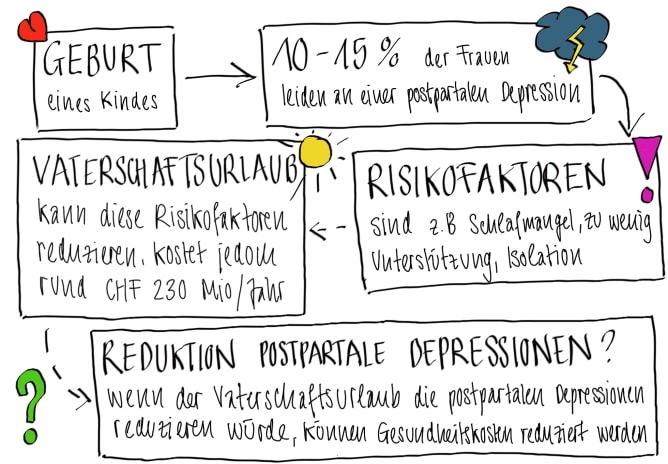 GEBURT
eines Kindes
10-15% der Frauen
leiden an einer postpartalen Depression
RISIKOFAKTOREN
sind z.B Schlafmangel, zu wenig
Unterstützung, Isolation
VATERSCHAFTSURLAUB
kann diese Risikofaktoren
reduzieren, kostet jedoch
rund CHF 230 Mio/Jahr
REDUKTION POSTPARTALE DEPRESSIONEN?
wenn der Vaterschaftsurlaub die postpartalen Depressionen
reduzieren würde, können Gesundheitskosten reduziert werden